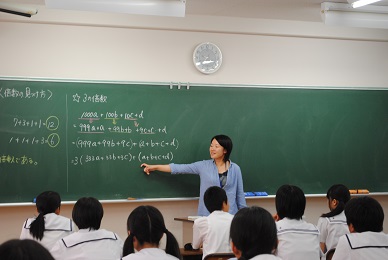 (倍数の見つけ方)
7+3+1+1=12
1+1+1+3=6
☆ 3の倍数
1000a+100b+10c+d
=999a+a+99b+b+9c+c+d
=(999a+99b+9c)+(a+b+c+d)
=3(333a+33b+3c)+(a+b+c+d)